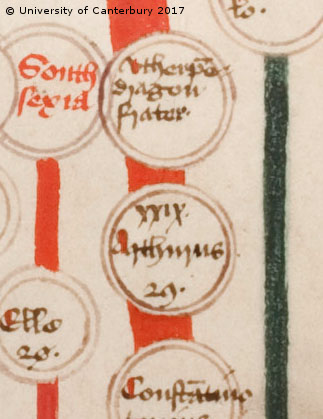 © University of Canterbury 2017
South
sexia
Vtherpē
dragon
frater·
xxix·
Arthurus
29·
Elle
Constātino